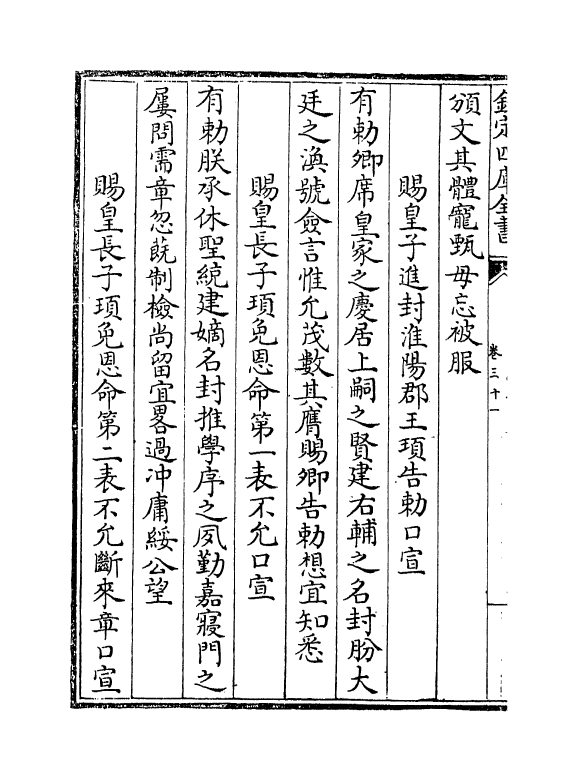 欽定四庫全書
卷三十一
頒文其體寵甄毋忘被服
賜皇子進封淮陽郡王頊告勅口宣
有勅卿席皇家之慶居上嗣之賢建右輔之名封肦大
廷之渙號僉言惟允茂數其膺賜卿告勅想宜知悉
賜皇長子頊免恩命第一表不允口宣
有勅朕承休聖統建嫡名封推學序之夙勤嘉寢門之
屢問需章忽蔇制檢尚留宜畧過冲庸綏公望
賜皇長子頊免恩命第二表不允斷來章口宣